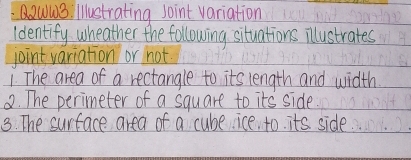 - Q2WW3. Illustrating Joint Variation
Identify wheather the following situations illustrates
joint variation or not.
1. The area of a rectangle to its length and width.
2. The perimeter of a square to its side.
3. The surface area of a cube ice to its side.